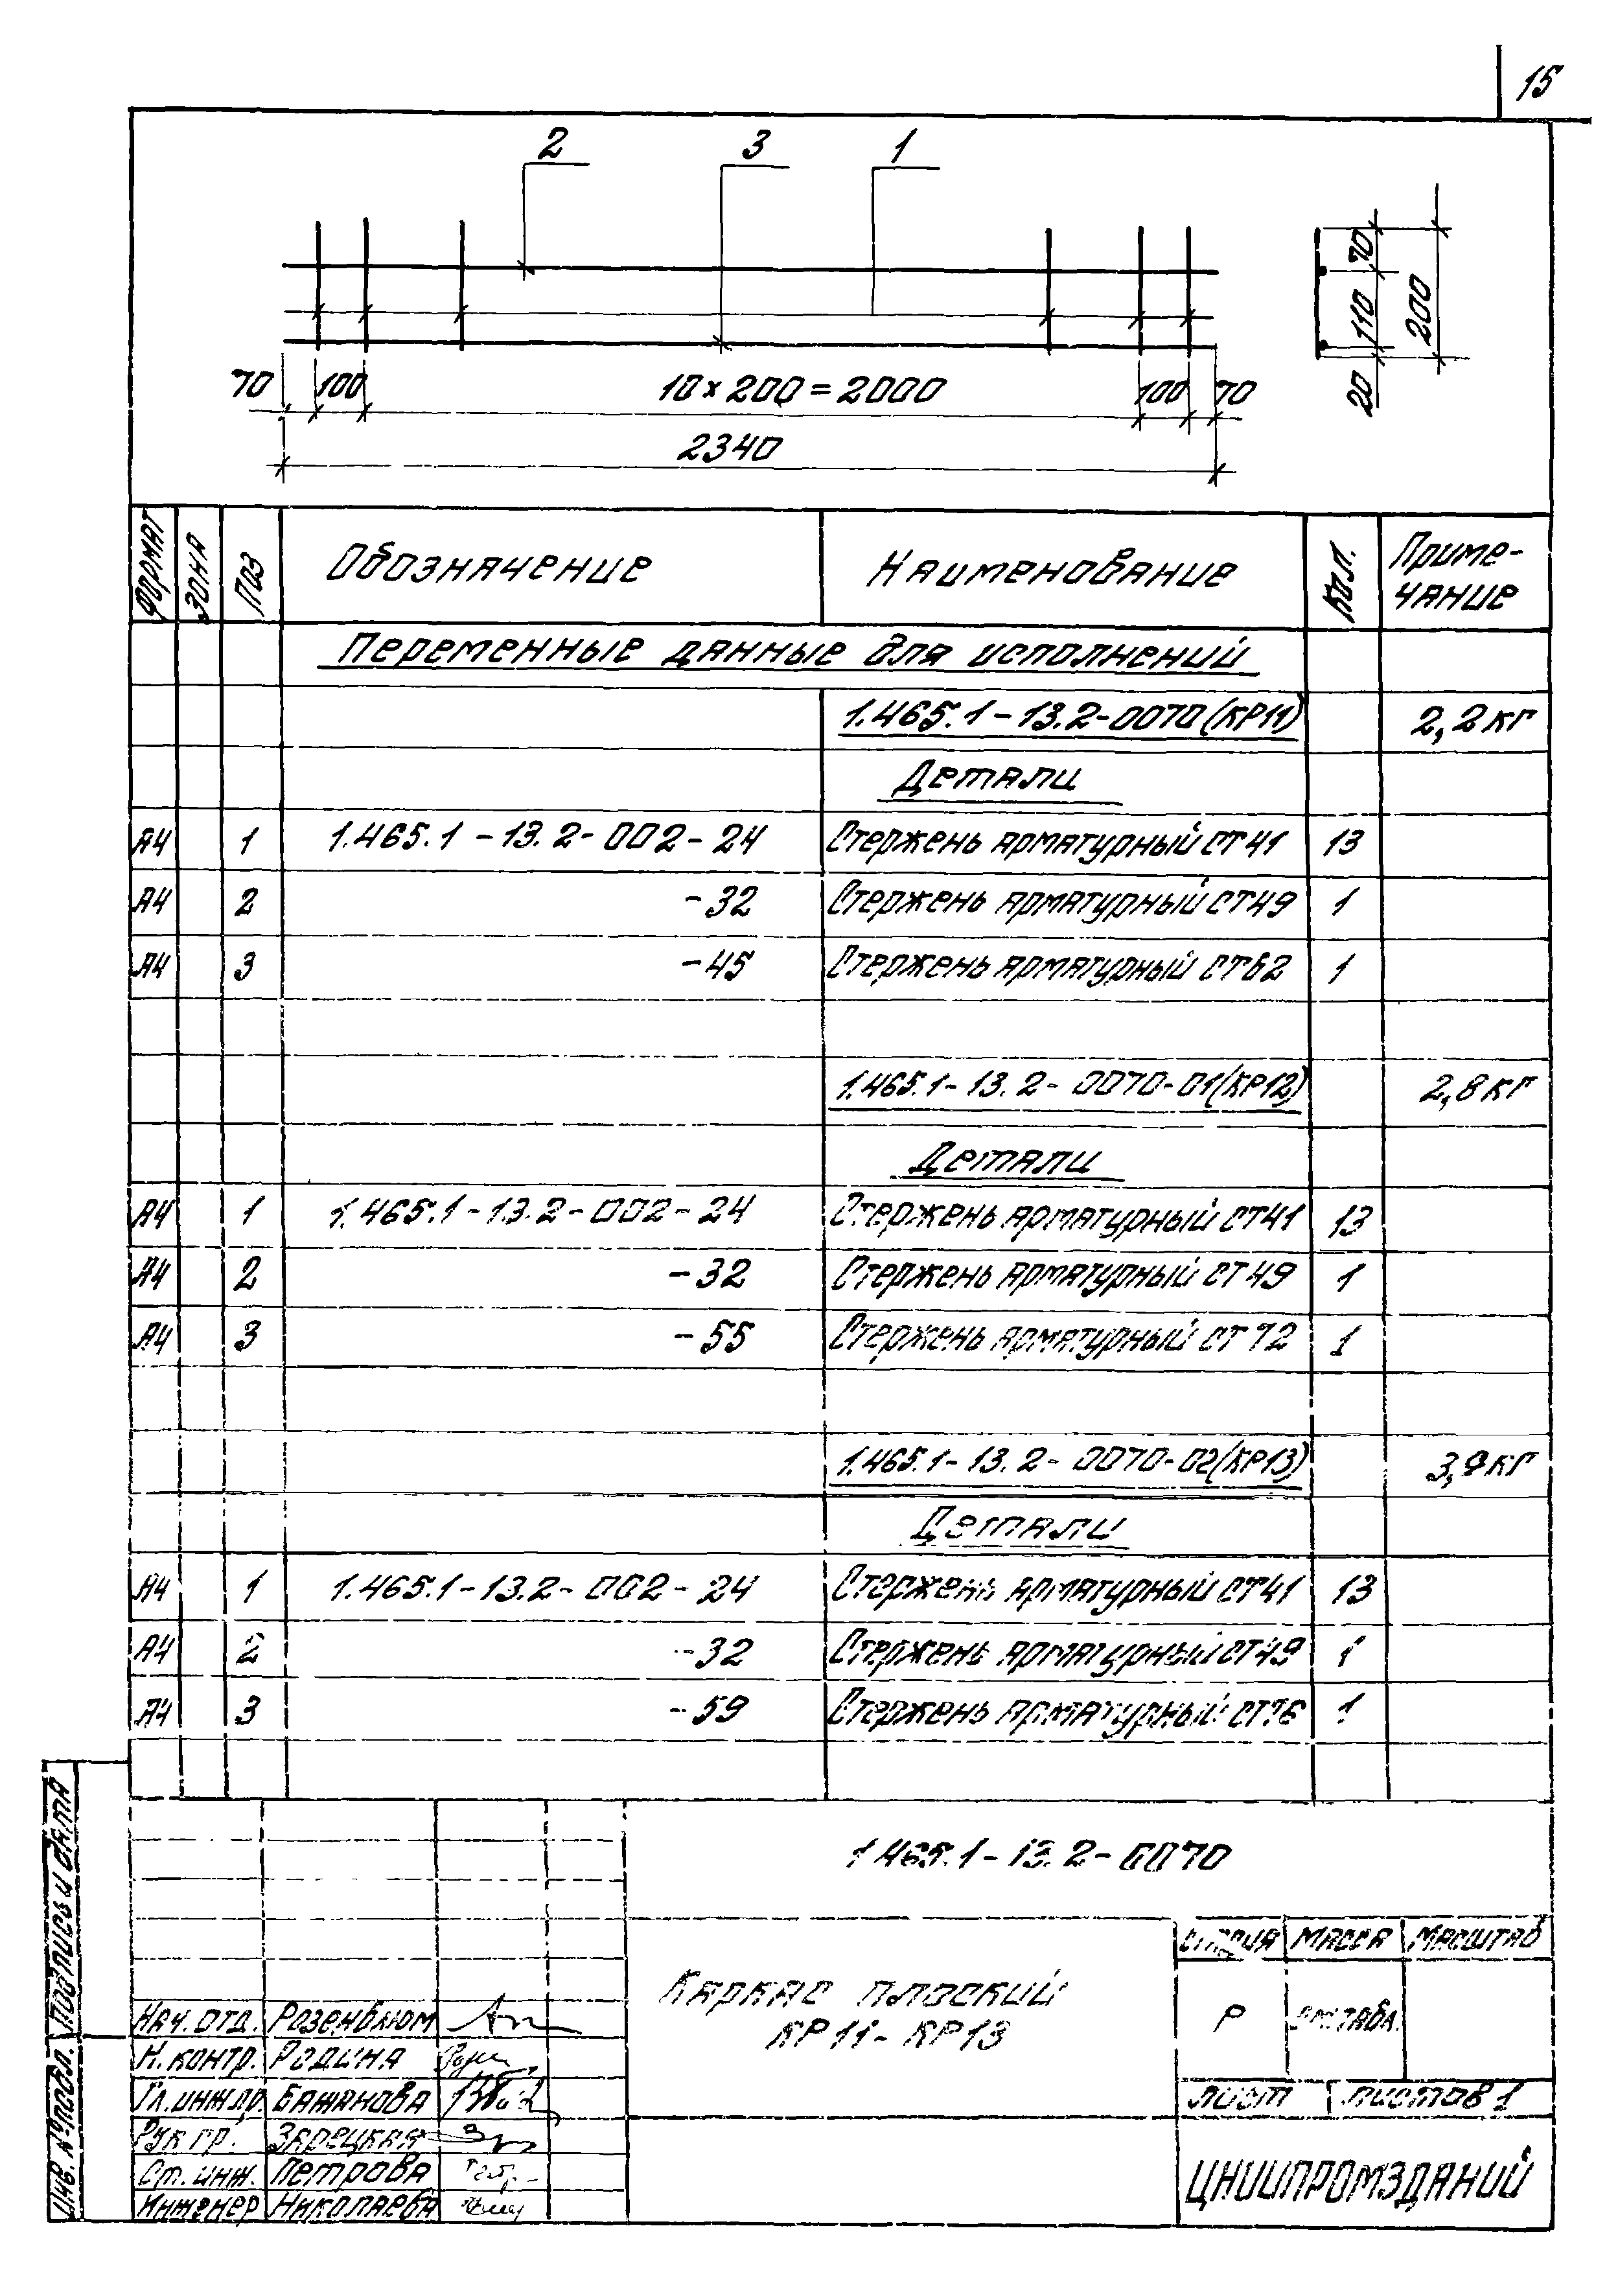 15
2 3 1
70 100 10 × 200 = 2000 100 70
2340
70 110 20 200
Формат Зона Поз Обозначение Наименование Кол. Приме-
чание
Переменные данные для исполнений
1.465.1-13.2-0070 (КР11) 2,2 кг
Детали
А4 1 1.465.1-13.2-002-24 Стержень арматурный СТ41 13
А4 2 -32 Стержень арматурный СТ49 1
А4 3 -45 Стержень арматурный СТ62 1
1.465.1-13.2-0070-01 (КР12) 2,8 кг
Детали
А4 1 1.465.1-13.2-002-24 Стержень арматурный СТ41 13
А4 2 -32 Стержень арматурный СТ49 1
А4 3 -55 Стержень арматурный СТ72 1
1.465.1-13.2-0070-02 (КР13) кг
Детали
А4 1 1.465.1-13.2-002-24 Стержень арматурный СТ41 13
А4 2 -32 Стержень арматурный СТ49 1
А4 3 -59 Стержень арматурный 1
1.465.1-13.2-0070
Каркас плоский
КР11-КР13
Стадия Масса Масштаб
Р см.табл.
Лист Листов 1
ЦНИИПРОМЗДАНИЙ
Нач. отд. Розенблюм
Н. контр. Родина
Гл. инж.пр. Бажанова
Рук гр. Зарецкая
Ст. инж. Петрова
Инженер Николаева
Инв. № подл. Подпись и дата